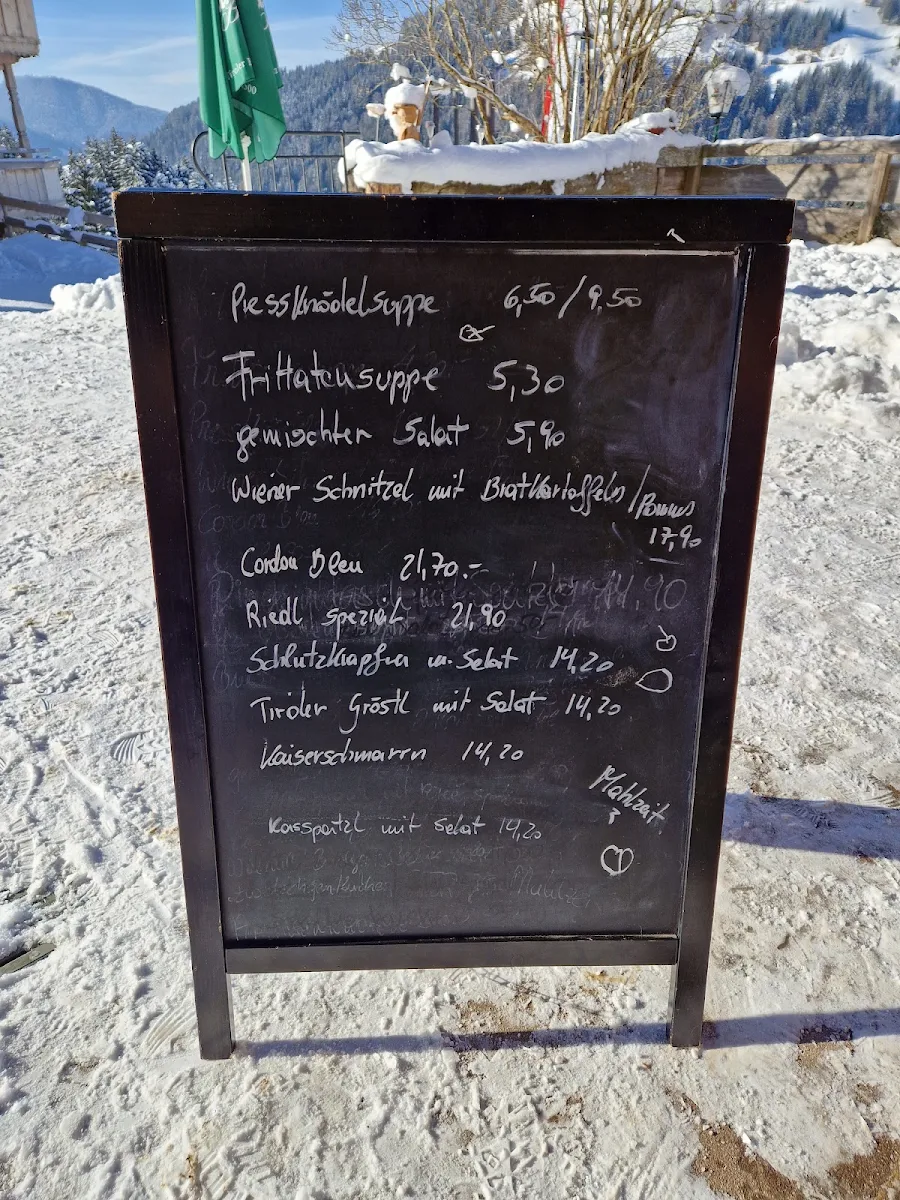 Pressknödelsuppe 6,50 / 9,50
Frittatensuppe 5,30
gemischter Salat 5,90
Wiener Schnitzel mit Bratkartoffeln / Pommes
17,90
Cordon Bleu 21,70.-
Riedl spezial 21,90
Schlutzkrapfen m. Salat 14,20
Tiroler Gröstl mit Salat 14,20
Kaiserschmarrn 14,20
Mahlzeit
Kasspatzl mit Salat 14,20